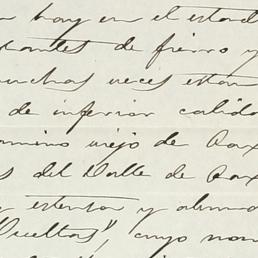 hay en el estad
de fierro y
muchas veces estan
de inferior calida
camino viejo de Oax
s del Valle de Oax
y estensa y abun
Vueltas", cuyo nom